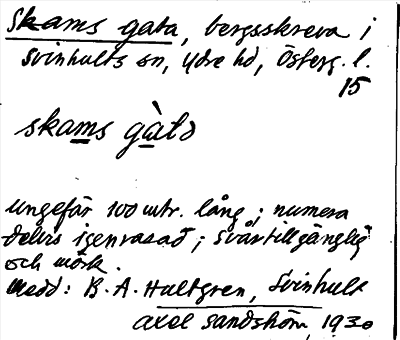 Skams gata, bergsskreva i
Svinhults sn, Ydre hd, Österg. l.
15
skams gàtɔ
ungefär 100 mtr. lång; numera
delvis igenrasad; svårtillgänglig
och mörk.
Medd: B. A. Hultgren, Svinhult
Axel Sandström, 1930